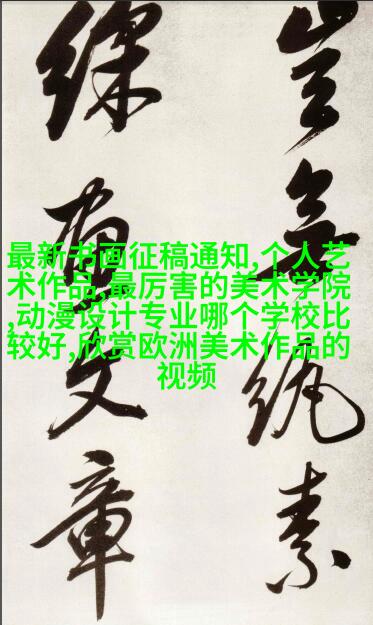 豈無紈素
綵畫文章
最新书画征稿通知,个人艺
术作品,最厉害的美术学院
,动漫设计专业哪个学校比
较好,欣赏欧洲美术作品的
视频